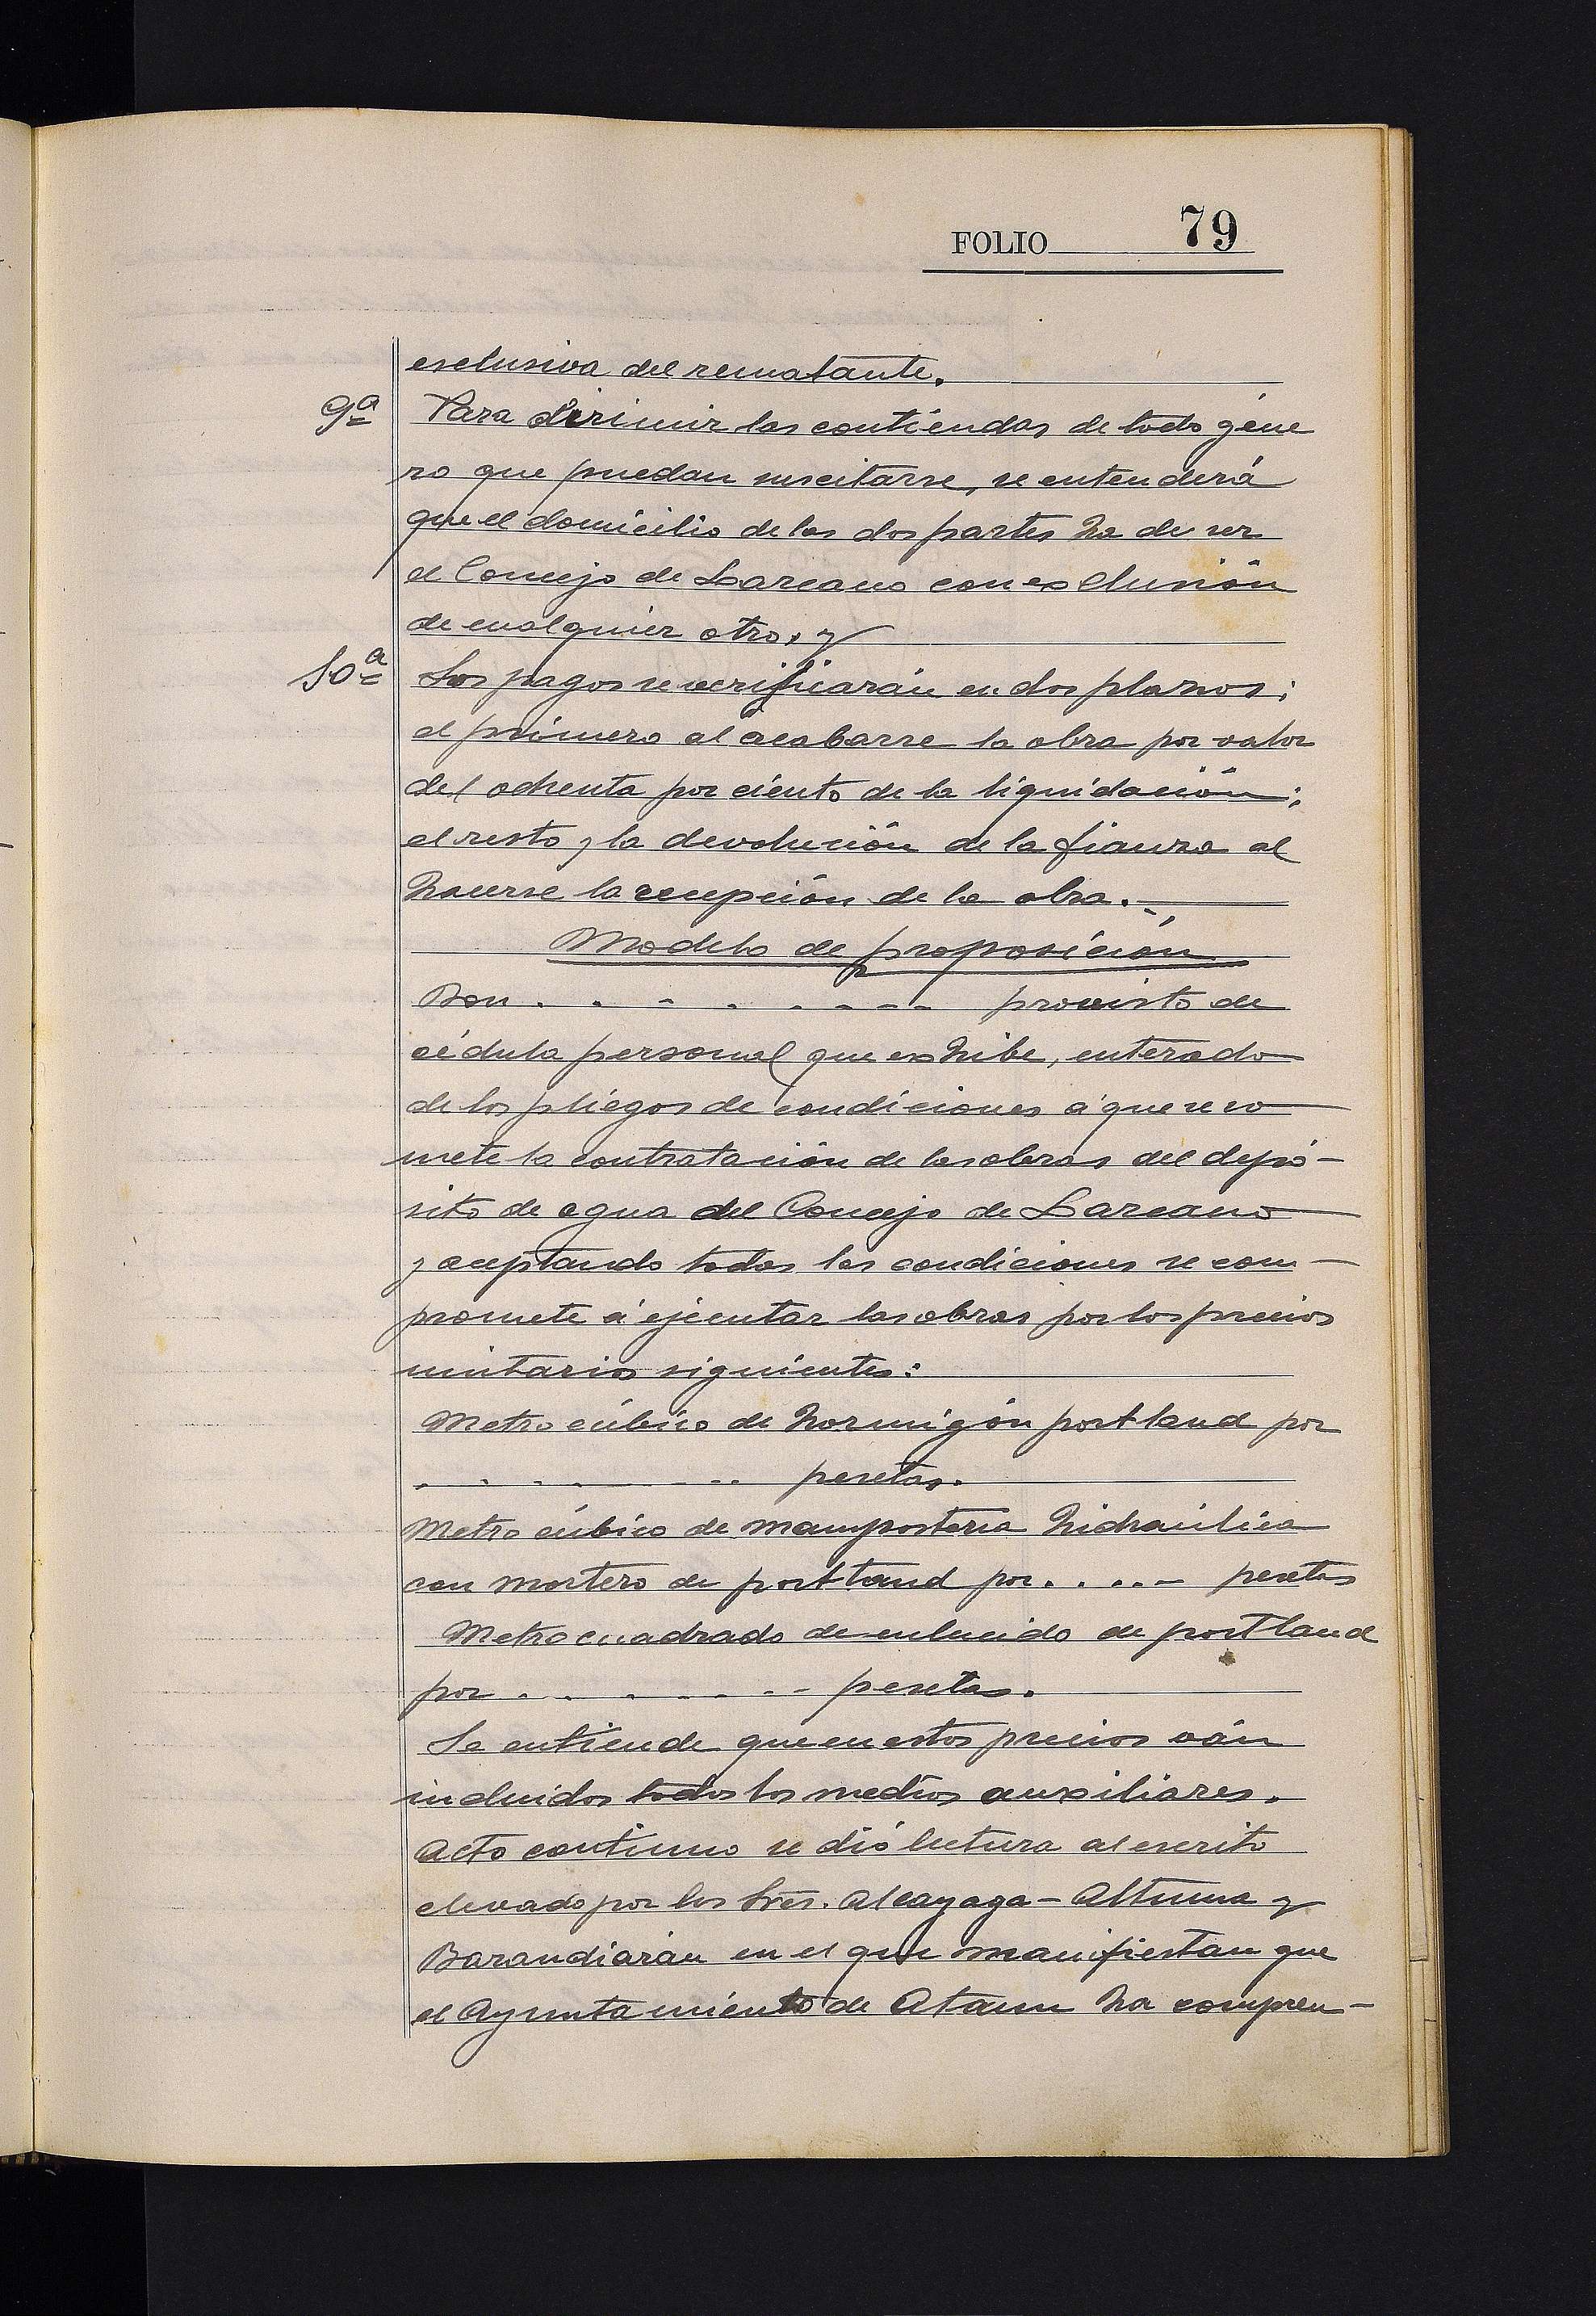 FOLIO 79
esclusiva del rematante.
9ª Para dirimir las contiendas de todo géne
ro que puedan suscitarse, se entenderá
que el domicilio de las dos partes ha de ser
el Concejo de Lazcano con exclusión
de cualquier otro, y
10ª Los pagos se verificarán en dos plazos;
el primero al acabarse la obra por valor
del ochenta por ciento de la liquidación;
el resto y la devolución de la fianza al
hacerse la recepción de la obra.
Modelo de proposición
Don . . . . . . . . provisto de
cédula personal que exhibe, enterado
de los pliegos de condiciones á que se so
mete la contratación de las obras del depó-
sito de agua del Concejo de Lazcano
y aceptando todas las condiciones se com-
promete á ejecutar las obras por los precios
unitarios siguientes:
Metro cúbico de hormigón portland por
. . . . . . . . pesetas.
Metro cúbico de mampostería hidraúlica
con mortero de portland por . . . . . pesetas
Metro cuadrado de enlucido de portland
por . . . . . . . . pesetas.
Se entiende que en estos precios ván
incluidos todos los medios auxiliares.
Acto continuo se dió lectura al escrito
elevado por los Sres. Alcayaga-Altuna y
Barandiarán en el que manifiestan que
el Ayuntamiento de Ataun ha compren-